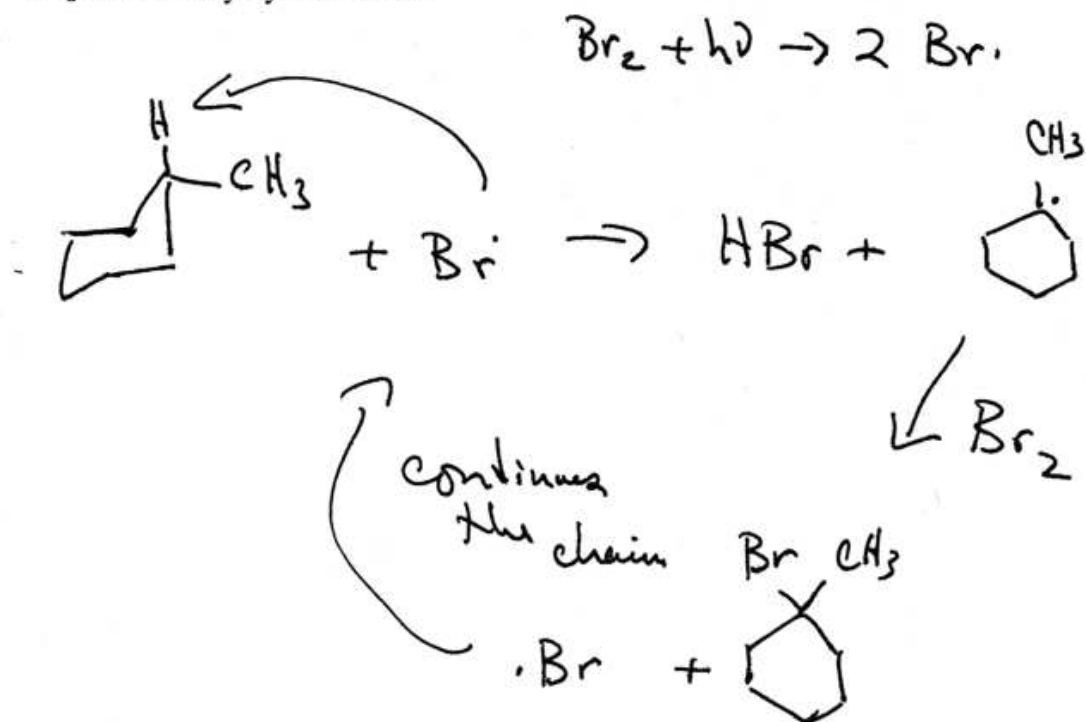 Br₂ + hν → 2 Br·
H
CH₃
CH₃
+ Br· → HBr +
Br₂
continues
the chain
Br CH₃
·Br +